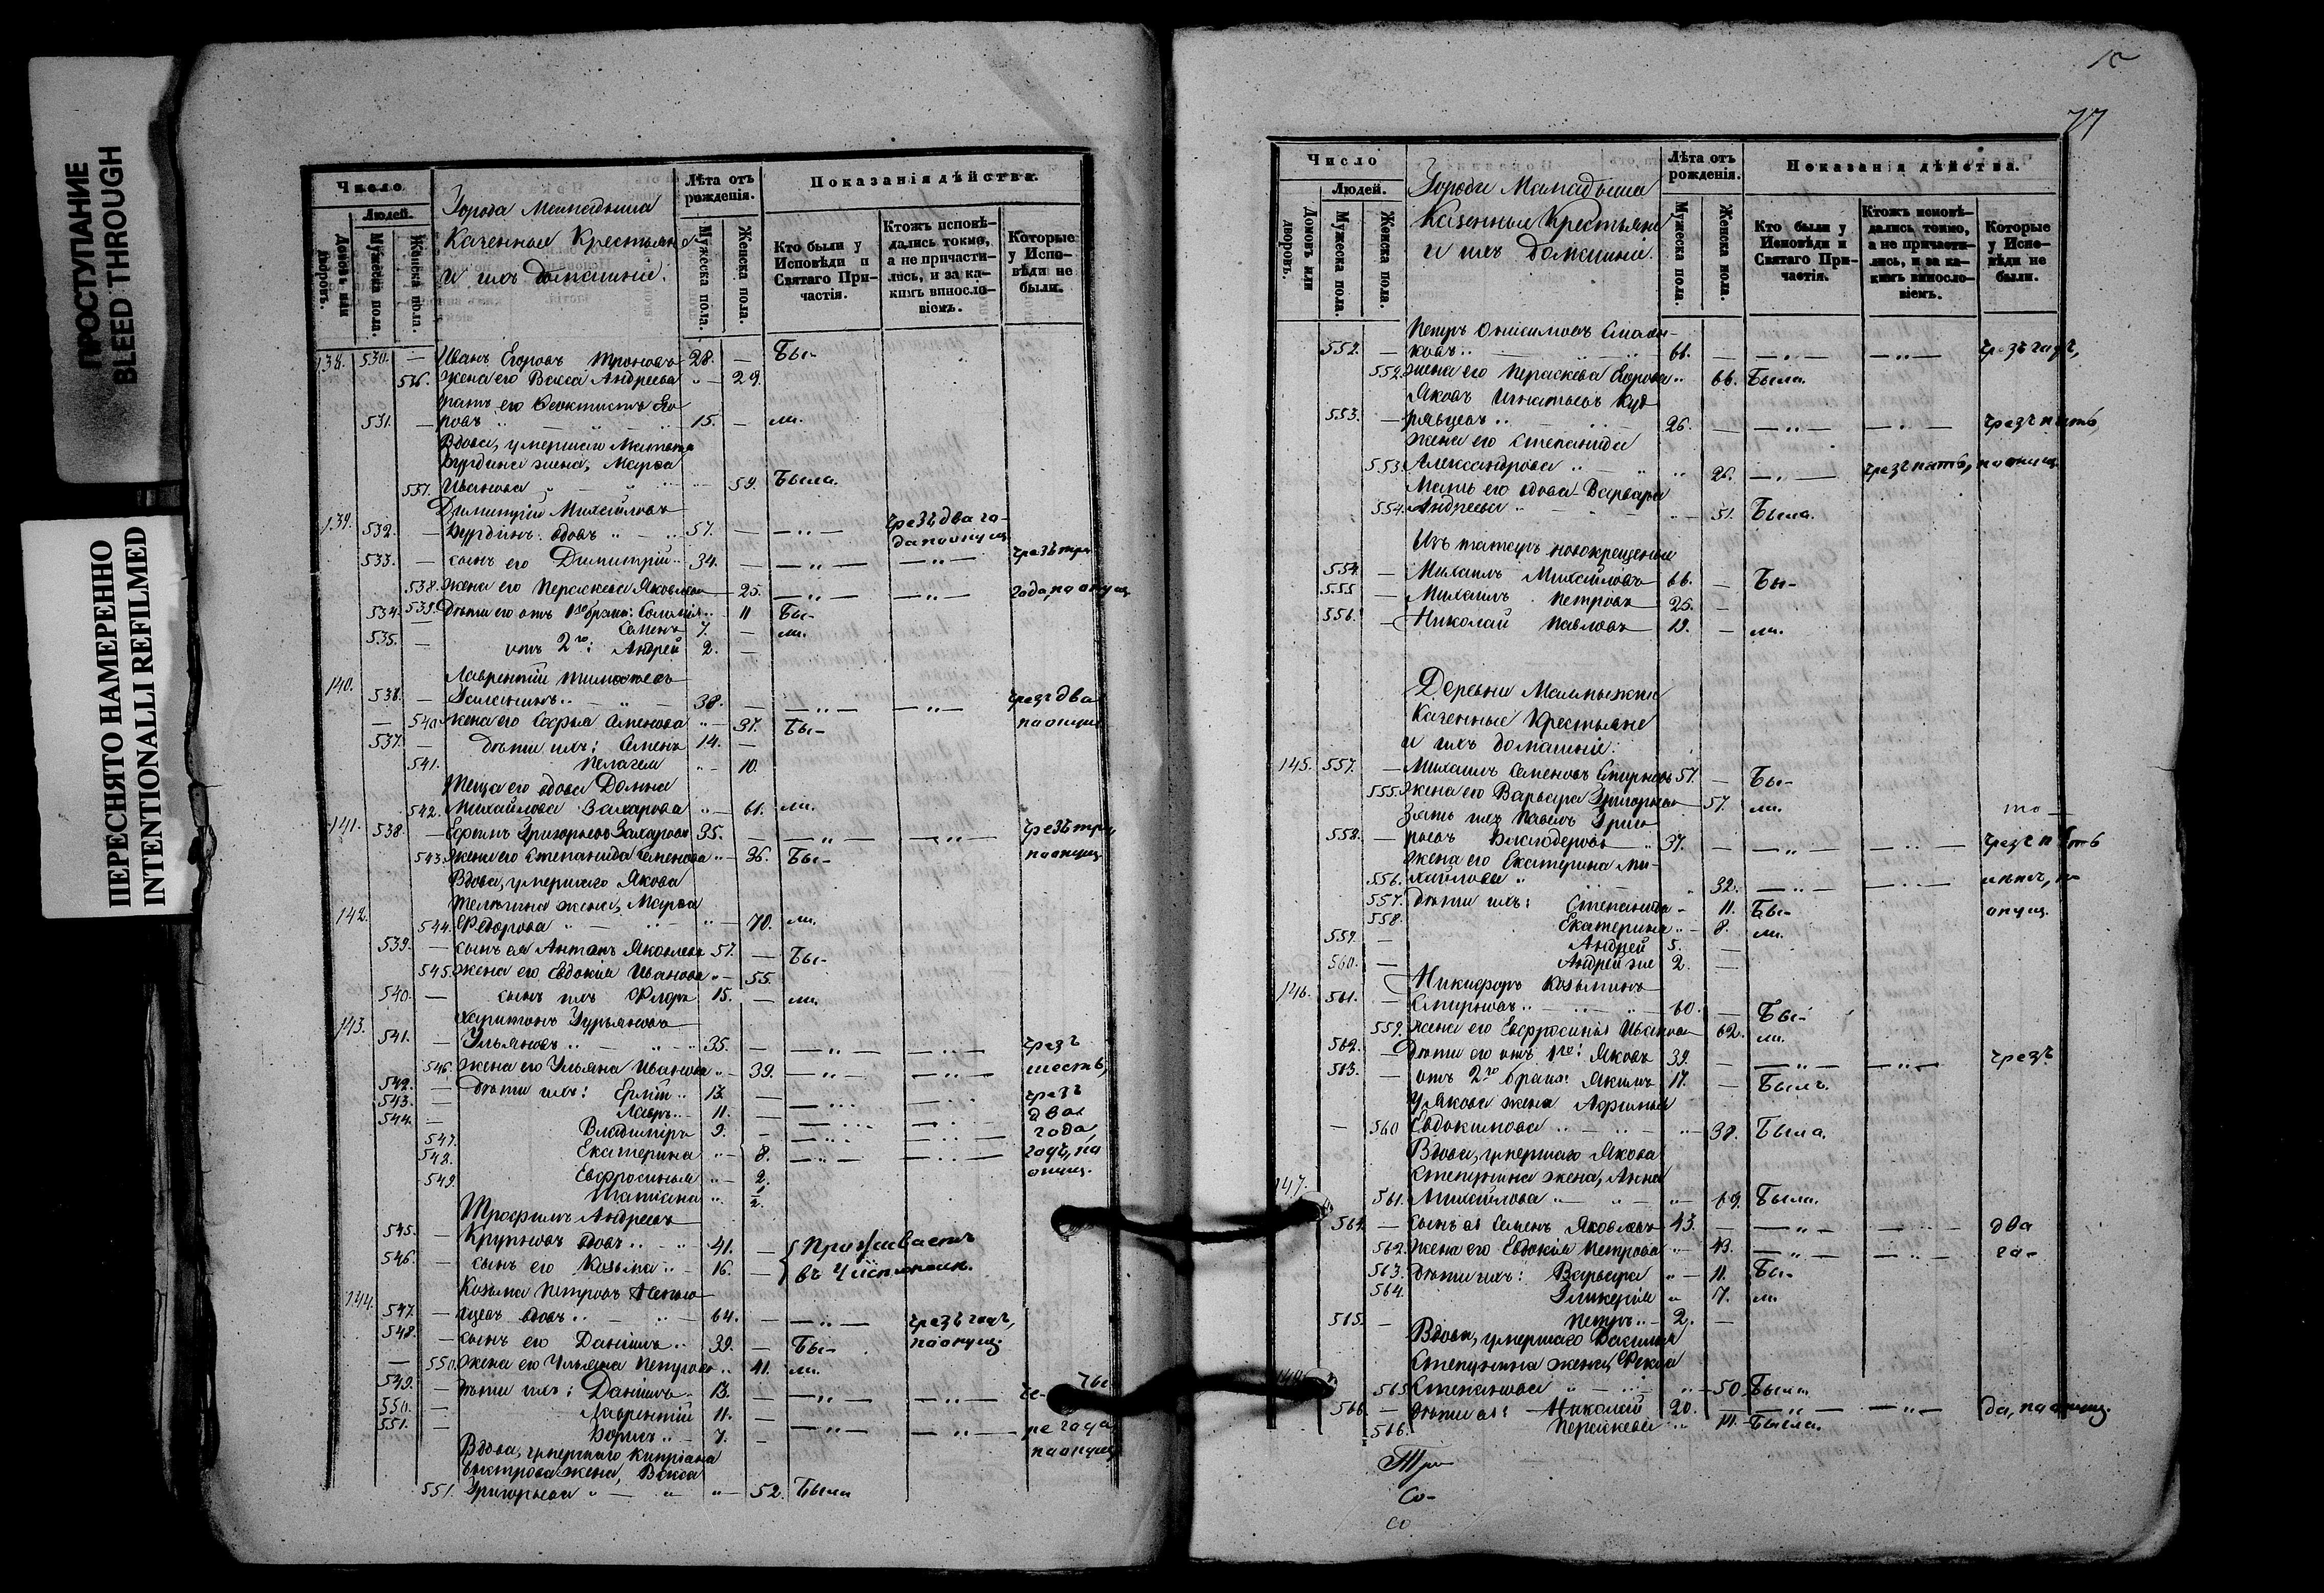 ПРОСТУПАНИЕ
BLEED THROUGH
ПЕРЕСНЯТО НАМЕРЕННО
INTENTIONALLI REFILMED
Число
Людей.
Домовъ или дворовъ.
Мужеска пола.
Женска пола.
Города Мамадыша
Казенные Крестьяне
и ихъ домашніе.
Лѣта отъ рожденія.
Мужеска пола.
Женска пола.
Показанія дѣйства.
Кто были у Исповѣди и Святаго Причастія.
Ктожъ исповѣдались токмо, а не причастились, и за какимъ винословіемъ.
Которые у Исповѣди не были.
138. 530. — Иванъ Егоровъ 28. — Бы-
536. жена его Васса Андреева „ — 29.
братъ его Феоктистъ Его
531. — ровъ „ 15. — ли.
Вдова, умершаго
Бурдина жена, Марѳа
537. Иванова 59. Была.
Димитрій Михайловъ
139. 532. — Бурдинъ вдовъ 57. — — „ — чрезъ два го-
да по опущ.
533. — сынъ его Димитрій 34. — — „ — — „ — чрезъ три
538. жена его Параскева Яковлева — 25. — „ — — „ — года, по опущ.
534. 539. Дѣти его отъ 1го брака: Соломія 11 Бы-
Семенъ 7. — ли.
535. — отъ 2го: Андрей 2. —
140. Лаврентій Тимофеевъ
536. — 38. — — „ — — „ — чрезъ два
— 540. жена его Софья Семенова „ — 37. Бы- по опущ.
537. — дѣти ихъ: Семенъ 14. —
541. Пелагея „ — 10.
Теща его вдова Домна
542. Михайлова Захарова „ — 61. ли.
141. 538. — Ефимъ Григорьевъ Захаровъ 35. — — „ — — „ — чрезъ три
543. жена его Степанида Семенова „ — 36. Бы- по опущ.
Вдова, умершаго Якова
жена, Марѳа
142. 544. Ѳедорова „ — 70. ли.
539. — сынъ ея Антонъ Яковлевъ 57. — Бы-
545. жена его Евдокія Иванова „ — 55.
540. — сынъ ихъ Флоръ 15. — ли.
Харитонъ Гурьяновъ
143. 541. — Ульяновъ 35. — — „ — — „ — чрезъ
546. жена его Ульяна Иванова „ — 39. — „ — — „ — шесть,
542. — дѣти ихъ: Ермій 13. — чрезъ
543. — Лавръ 11. — два
544. — Владиміръ 9. — года,
547. Екатерина „ — 8. годъ, по
548. Евфросинья „ — 2. опущ.
549. Татіана „ 1/2.
Трофимъ Андреевъ
545. — Крупновъ вдовъ 41. — Проживаетъ
546. — сынъ его Козьма 16. — въ Чистополѣ.
Козьма Петровъ
144. 547. — вдовъ 64. — — „ — чрезъ годъ,
548. — сынъ его Даніилъ 39. — Бы- по опущ.
— 550. жена его Ульяна Петрова „ 41. ли.
549. — дѣти ихъ: Даніилъ 13. — — „ — — „ — че-
550. — Лаврентій 11. —
551. — Борисъ 7. — — „ — — „ — ре года
Вдова, умершаго Кипріана по опущ.
Быстрова жена, Васса
551. Григорьева „ — „ „ — 52. Была
77
Число
Людей.
Домовъ или дворовъ.
Мужеска пола.
Женска пола.
Города Мамадыша
Казенные Крестьяне
и ихъ домашніе.
Лѣта отъ рожденія.
Мужеска пола.
Женска пола.
Показанія дѣйства.
Кто были у Исповѣди и Святаго Причастія.
Ктожъ исповѣдались токмо, а не причастились, и за какимъ винословіемъ.
Которые у Исповѣди не были.
Петръ Онисимовъ
552. — ковъ 66. — — „ — — „ — чрезъ годъ,
552. жена его Параскева Егорова „ 66. Была.
Яковъ Игнатьевъ Куд
553. — рявцевъ 26. — — „ — — „ — чрезъ пять,
жена его Степанида
553. Александрова 26. — „ — чрезъ пять, по опущ.
Мать его вдова Варвара
554. Андреева „ — 51. Была.
Изъ татаръ новокрещеные
554. — Михаилъ Михайловъ 66. — Бы-
555. — Михаилъ Петровъ 25. —
556. — Николай Павловъ 19. — ли.
Деревни Малмыжки
Казенные Крестьяне
и ихъ домашніе:
145. 557. — Михаилъ Семеновъ Смирновъ 57. — Бы-
555. жена его Варвара Григорьева — 57. ли.
Зять ихъ Павелъ Григо то
558. — рьевъ 37. — — „ — — „ — чрезъ пять
жена его Екатерина Ми-
556. хайлова „ „ 32. — „ — — „ — лѣтъ, по
557. дѣти ихъ: Степанида — 11. Бы- опущ.
558. Екатерина „ — 8. ли.
559. — Андрей 5. —
560. — Андрей же 2. —
Никифоръ Козьминъ
146. 561. — Смирновъ 60. — Бы-
559. жена его Евфросинья Иванова 62. ли.
562. — дѣти его отъ 1го: Яковъ 39. — — „ — — „ — чрезъ
563. — отъ 2го брака: Якимъ 17. — Былъ.
у Якова жена Афимья
— 560 Евдокимова „ — 38. Была.
Вдова, умершаго Якова
Степунина жена, Анна
147. 561. Михайлова „ — „ 69. Была.
564. — сынъ ея Семенъ Яковлевъ 43. — — „ — два
562. жена его Евдокія Петрова „ — 43. — „ — го-
563. дѣти ихъ: Варвара „ — 11. Бы-
564. Гликерія „ 7. ли
565. — Петръ 2. —
Вдова, умершаго Василья
Степунина жена, Ѳекла
565 Степанова „ — 50. Была
566. — дѣти ея: Николай 20. — — „ — — „ — да, по опущ.
566. Параскева „ 14. Была.
Тро
Со-
со